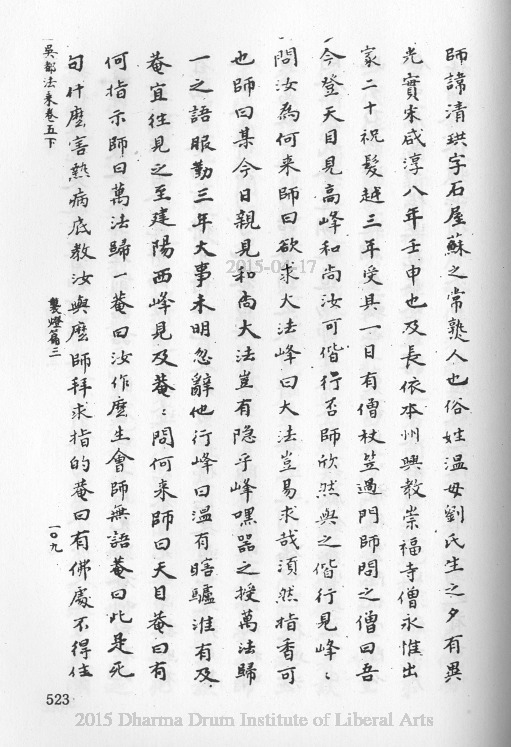 師諱清珙字石屋蘇之常熟人也俗姓溫母劉氏生之夕有異
光實宋咸淳八年壬申也及長依本州興教崇福寺僧永惟出
家二十祝髮越三年受具一日有僧杖笠過門師問之僧曰吾
今登天目見高峰和尚汝可偕行否師欣然與之偕行見峰〻
問汝為何來師曰欲求大法峰曰大法豈易求哉須然指香可
也師曰某今日親見和尚大法豈有隐乎峰嘿器之授萬法歸
一之語服勤三年大事未明忽辭他行峰曰溫有瞎驢淮有及
菴宜往見之至建陽西峰見及菴〻問何來師曰天目菴曰有
何指示師曰萬法歸一菴曰汝作麽生會師無語菴曰此是死
句什麽害熱病底教汝與麽師拜求指的菴曰有佛處不得住
吳都法乘卷五下
襲燈篇三
一〇九
523
2015-04-17
2015 Dharma Drum Institute of Liberal Arts